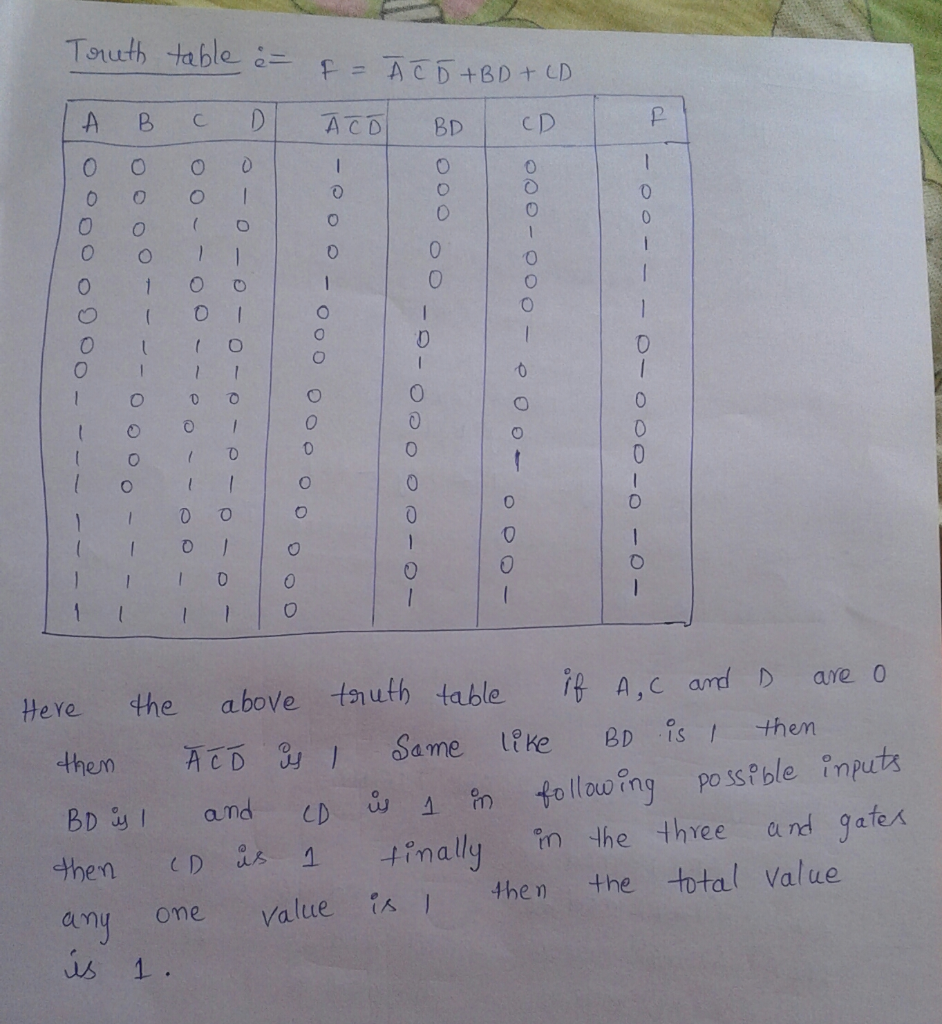 Truth table :=  F = A̅ C̅ D̅ + BD + CD
A B C D A̅ C̅ D̅ BD CD F
0 0 0 0 1 0 0 1
0 0 0 1 0 0 0 0
0 0 1 0 0 0 0 0
0 0 1 1 0 0 1 1
0 1 0 0 1 0 0 1
0 1 0 1 0 1 0 1
0 1 1 0 0 0 0 0
0 1 1 1 0 1 1 1
1 0 0 0 0 0 0 0
1 0 0 1 0 0 0 0
1 0 1 0 0 0 0 0
1 0 1 1 0 0 1 1
1 1 0 0 0 0 0 0
1 1 0 1 0 1 0 1
1 1 1 0 0 0 0 0
1 1 1 1 0 1 1 1
Here the above truth table if A, C and D are 0
then A̅ C̅ D̅ is 1 Same like BD is 1 then
BD is 1 and CD is 1 in following possible inputs
then CD is 1 finally in the three and gates
any one value is 1 then the total value
is 1.